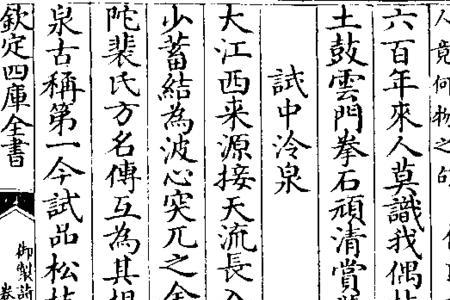 人竟何物之句
六百年來人莫識我偶
土鼓雲門拳石頑清賞
試中泠泉
大江西来源接天流長
少蓄結為波心突兀之金
陀裴氏方名傳互為其根
泉古稱第一今試品松
欽定四庫全書
御製詩
卷